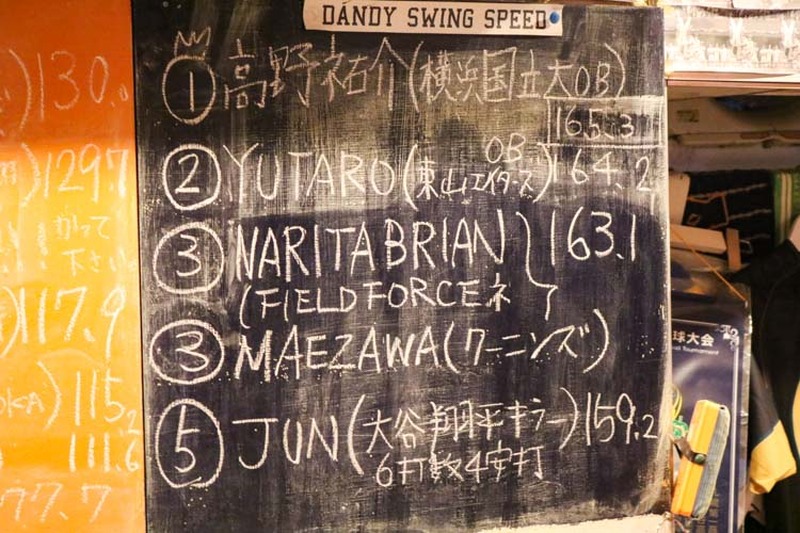 DANDY SWING SPEED
① 高野祐介(横浜国立大OB)
165.3
OB
② YUTARO(東山エイターズ) 164.2
③ NARITABRIAN
(FIELDFORCEネ) 163.1
③ MAEZAWA(ワーニンズ)
⑤ JUN(大谷翔平キラー) 159.2
6打数4安打
130.
)129.7
かって
下さい
)117.9
OKA)115.2
111.6
77.7
球大会
Tournament